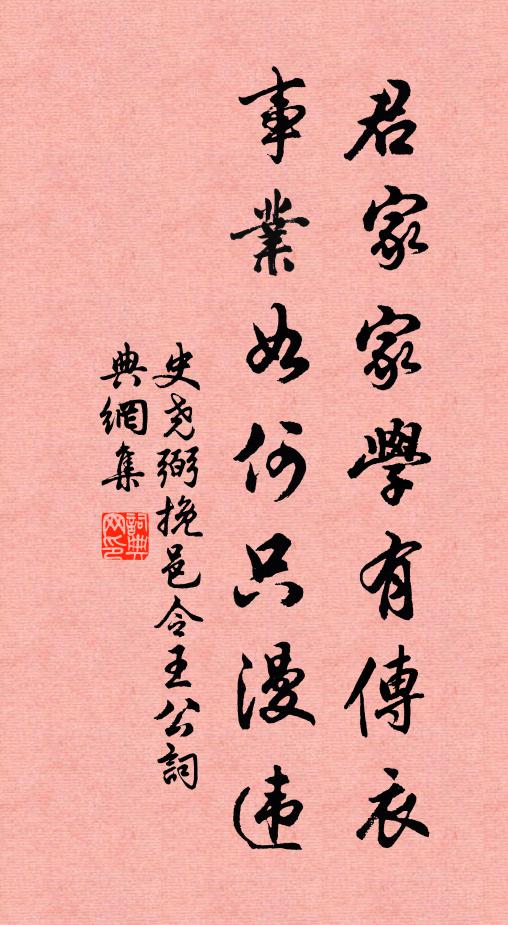 君家家學有傳衣
事業如何只漫违
史尧弼挽邑令王公詞
典網集
詞典網印